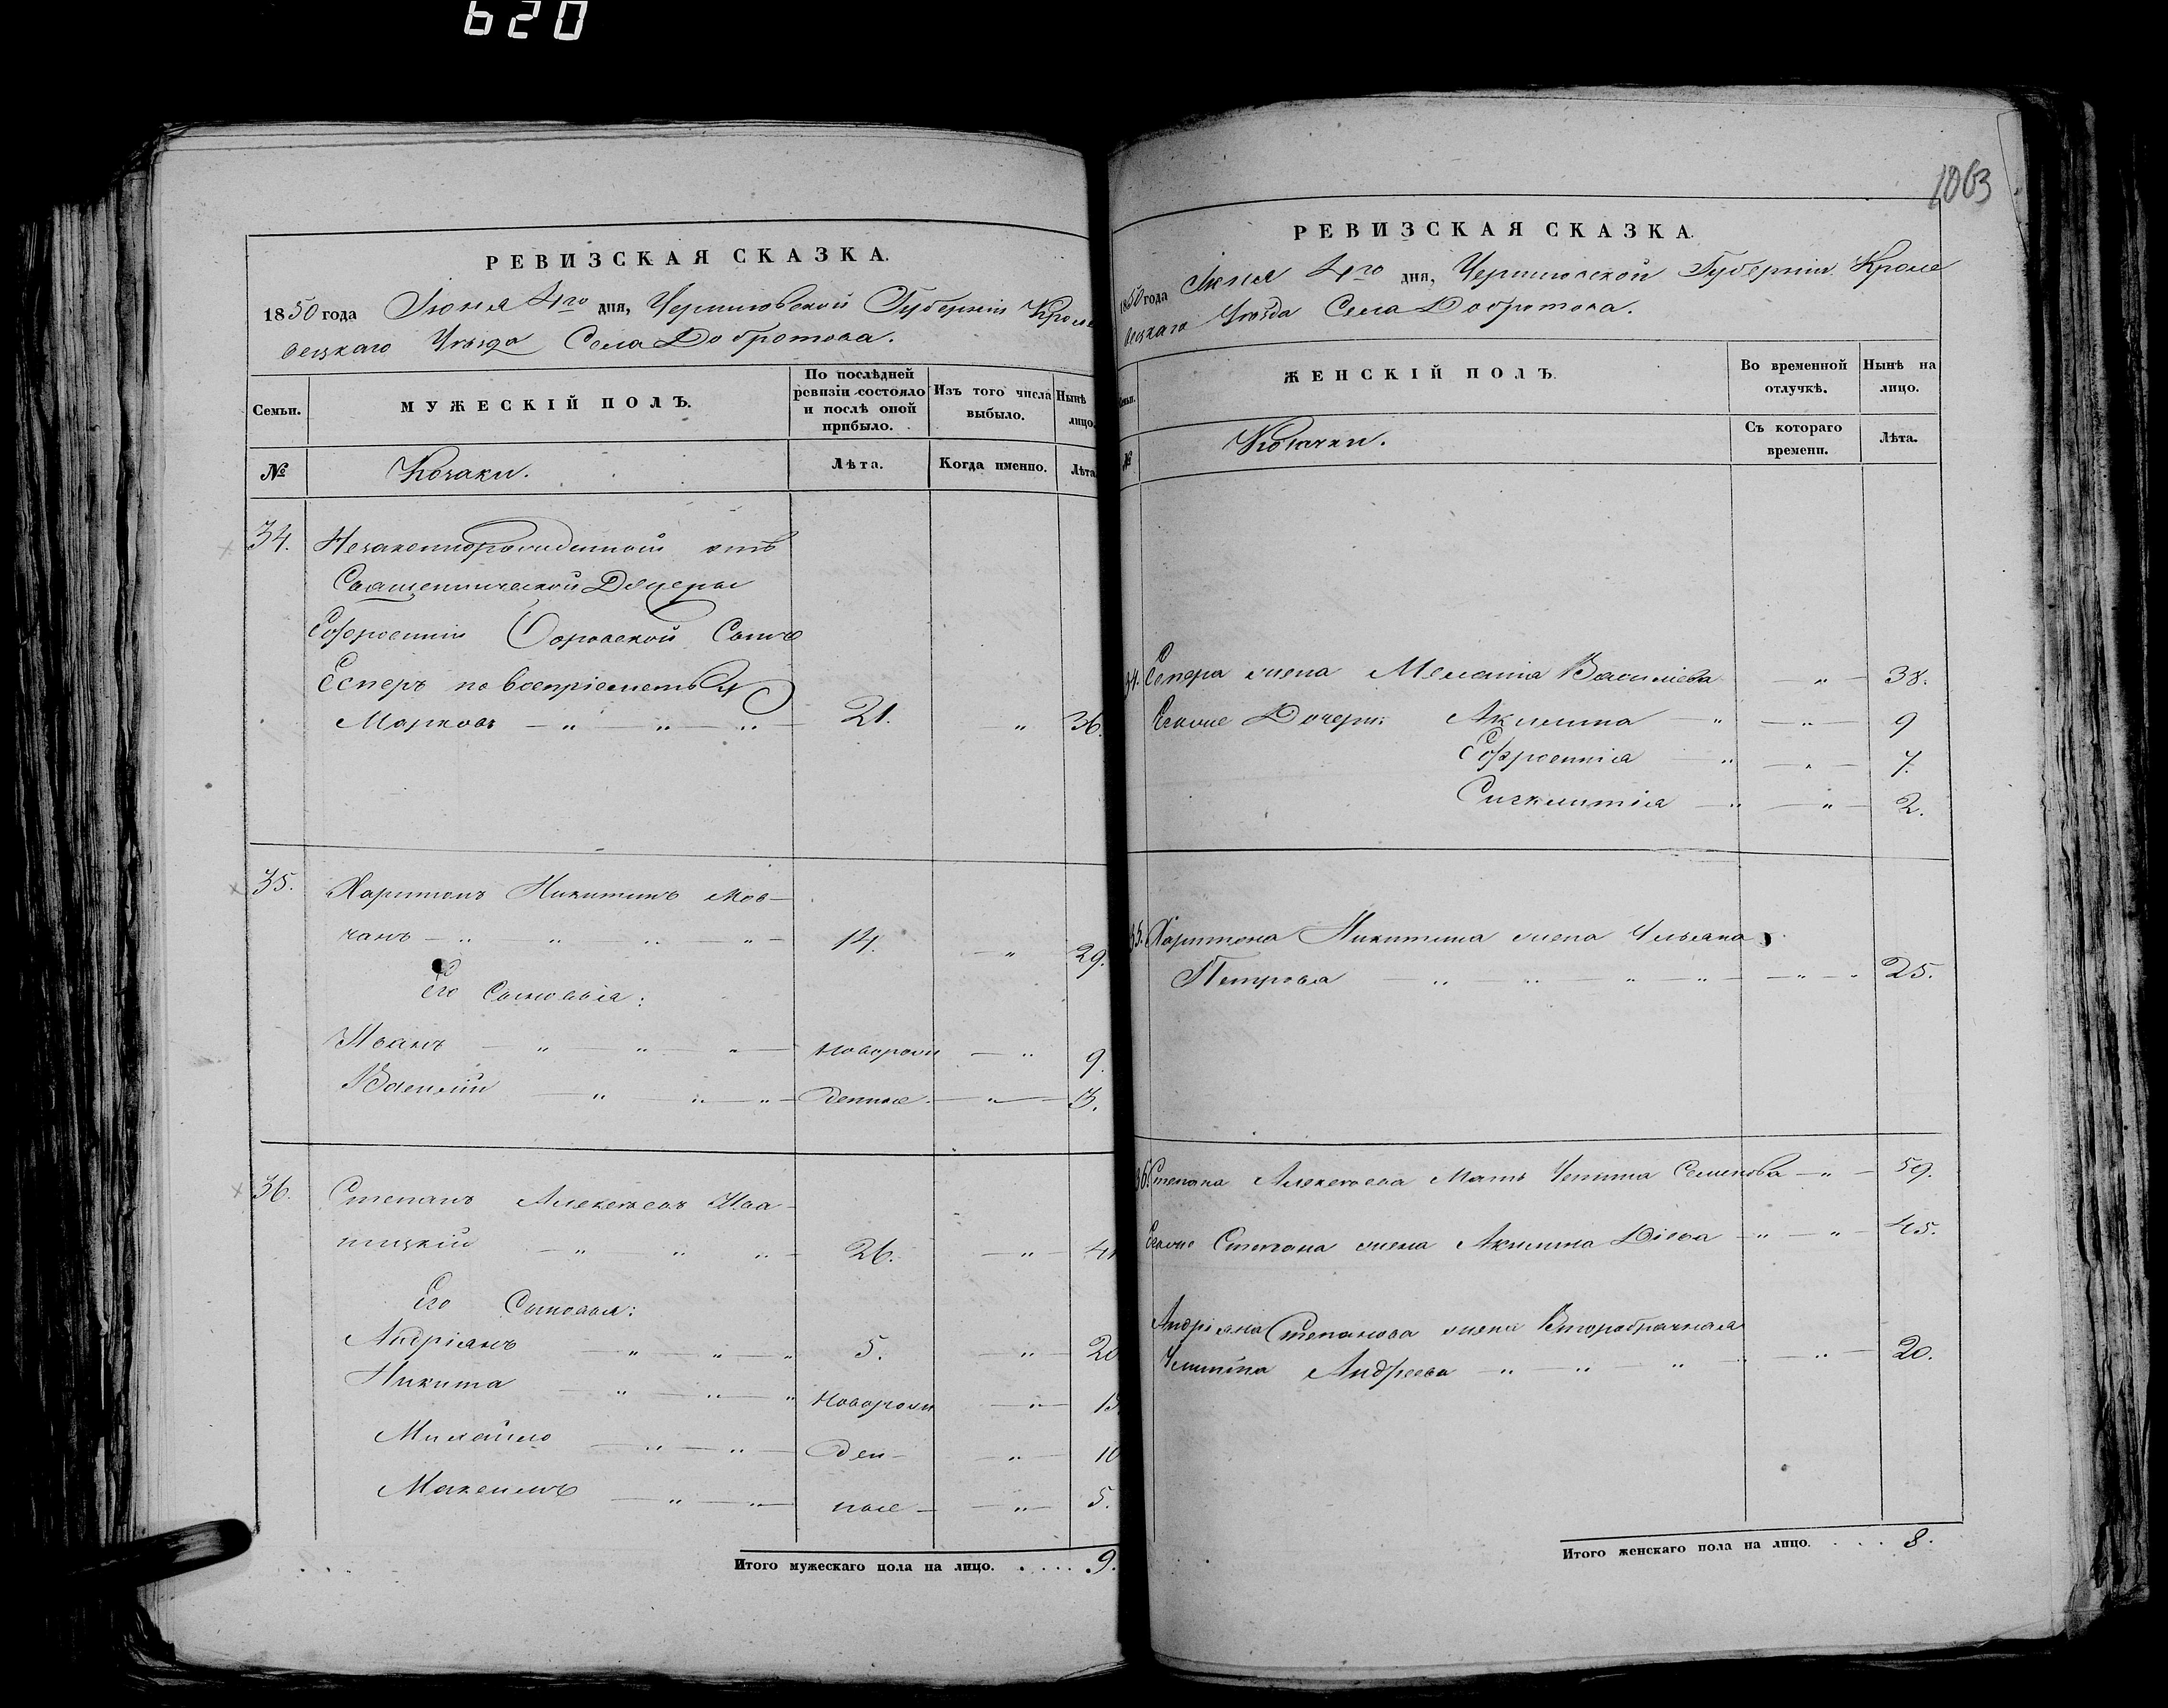 620
РЕВИЗСКАЯ СКАЗКА.
1850 года Іюня 4го дня, Черниговской Губерніи Кроле
вецкаго Уѣзда Села Добротова.
Семьи.
МУЖЕСКІЙ ПОЛЪ.
По послѣдней ревизіи состояло и послѣ оной прибыло.
Изъ того числа выбыло.
Нынѣ лицо.
№
Козаки.
Лѣта.
Когда именно.
Лѣта
34. Незаконнорожденной отъ
Священнической Дщеры
Сынъ
Есперъ по воспріемнѣ
Марковъ — " — " — " — 21. " 36.
35. Харитонъ Никитинъ Мов-
чанъ — " " " " — 14. — " 29.
Его Сыновья:
Иванъ — " — " — " — Новорож — " 9.
Василій — " — " — " — денные — " — 3.
36. Степанъ Алексѣевъ Ива-
ницкій — " " " — 26. — " — 41
Его Сыновья:
Андріянъ — " — " — " 5. — " — 20
Никита — " — " — " Новорож — " — 15
Михайло — " — " — ден- — " — 10
Максимъ — " — " — ные — — " — 5.
Итого мужескаго пола на лицо. . . . . 9.
1063
РЕВИЗСКАЯ СКАЗКА.
1850 года Іюня 4го дня, Черниговской Губерніи Кроле
вецкаго Уѣзда Села Добротова.
Семьи.
ЖЕНСКІЙ ПОЛЪ.
Во временной отлучкѣ.
Нынѣ на лицо.
№
Козачки.
Съ котораго времени.
Лѣта.
34. Еспера жена Меланія Васильева — " — 38.
Егоже Дочери: Акилина — " — " — 9
— " — " — 7.
Сигклитія — " — " — 2.
35. Харитона Никитина жена Ульяна
Петрова — " — " — " — " — " — " 25.
36. Степана Алексѣева Мать Семенова — " — 59.
Егоже Степана жена Акилина — " — " — 45.
Андріяна Степанова жена Второбрачная
Андреева — " — " " " — " — 20.
Итого женскаго пола на лицо. . . . 8.